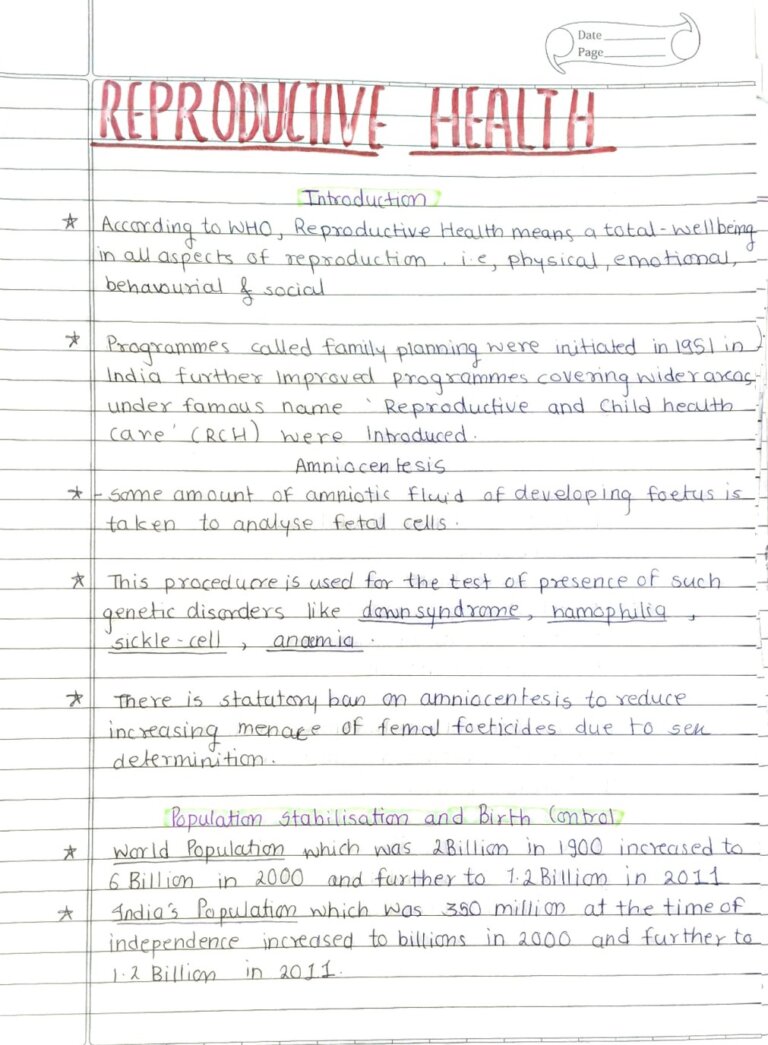 Date
Page
REPRODUCTIVE HEALTH
Introduction
* According to WHO, Reproductive Health means a total-wellbeing
in all aspects of reproduction. i.e, physical, emotional,
behavourial & social
* Programmes called family planning were initiated in 1951 in
India further Improved programmes covering wider areas
under famous name 'Reproductive and Child health
care' (RCH) were Introduced.
Amniocentesis
* - some amount of amniotic fluid of developing foetus is
taken to analyse fetal cells.
* This procedure is used for the test of presence of such
genetic disorders like downsyndrome, hamophilia,
sickle-cell, anaemia.
* There is statutory ban on amniocentesis to reduce
increasing menace of femal foeticides due to sex
determinition.
Population Stabilisation and Birth Control
* World Population which was 2Billion in 1900 increased to
6 Billion in 2000 and further to 7.2 Billion in 2011
* India's Population which was 350 million at the time of
independence increased to billions in 2000 and further to
1.2 Billion in 2011.